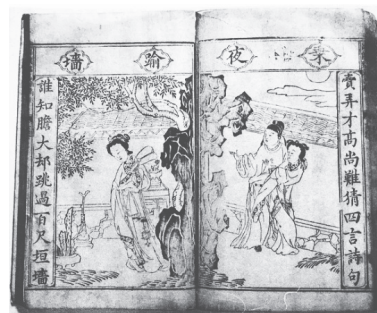 乘夜踰墻
賣弄才高尚難猜四言詩句
誰知膽大却跳過百尺垣墻